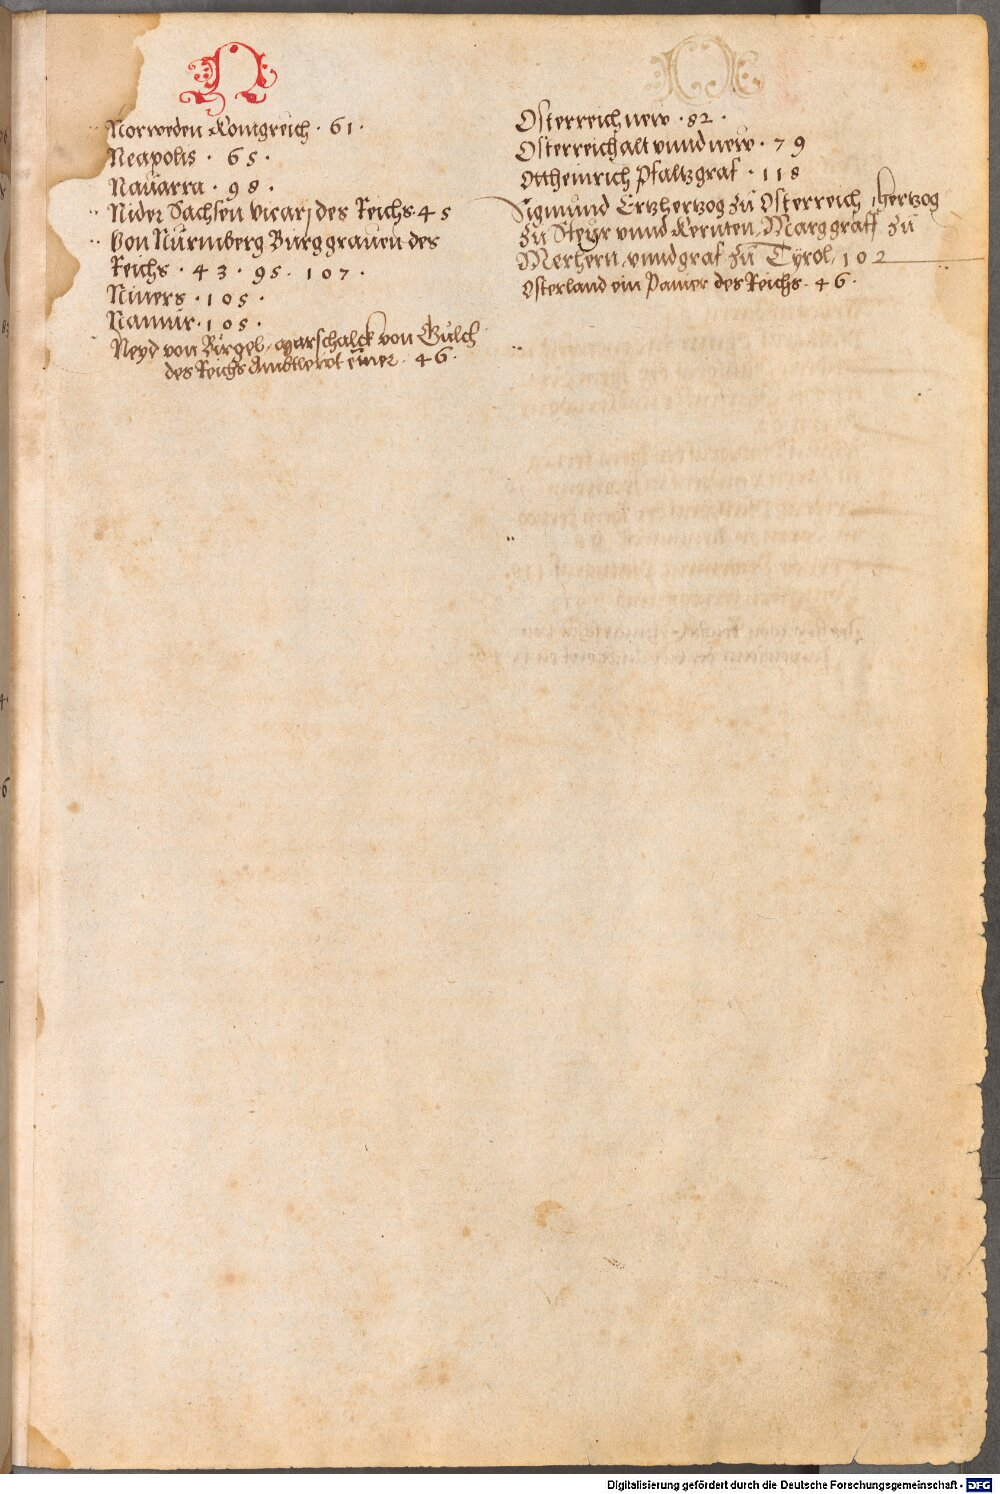 N
Norweden Konigreich · 61 ·
Neapolis · 65 ·
Nauarra · 98 ·
Nider Sachsen vicarj des Reichs · 45
Von Nurmberg Burggrauen des
Reichs · 43 · 95 · 107 ·
Niuers · 105 ·
Namur · 105 ·
Neyd von Birgel, Marschalck von Gulch
des Reichs Ambtlewt einer · 46 ·
O
Osterreich new · 82 ·
Osterreich alt vnnd new · 79
Ottheinrich Pfaltzgraf · 118
Sigmund Ertzhertzog zu Osterreich, Hertzog
zu Steyr vnnd Kernten, Marggraff zu
Merhern, vnnd graf zu Tyrol, 102
Osterland ein Panier des Reichs · 46 ·
Digitalisierung gefördert durch die Deutsche Forschungsgemeinschaft - DFG